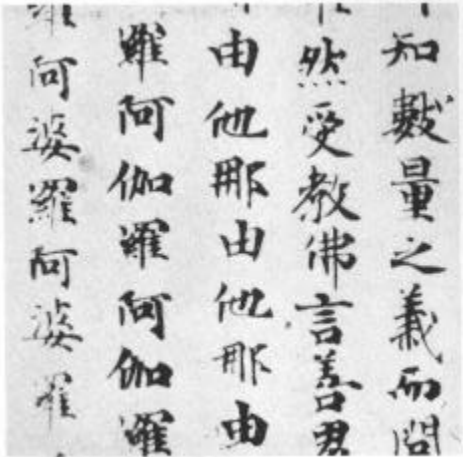 知數量之義而問
然受教佛言善
由他那由他那由
羅阿伽羅阿伽羅
羅阿婆羅阿婆羅